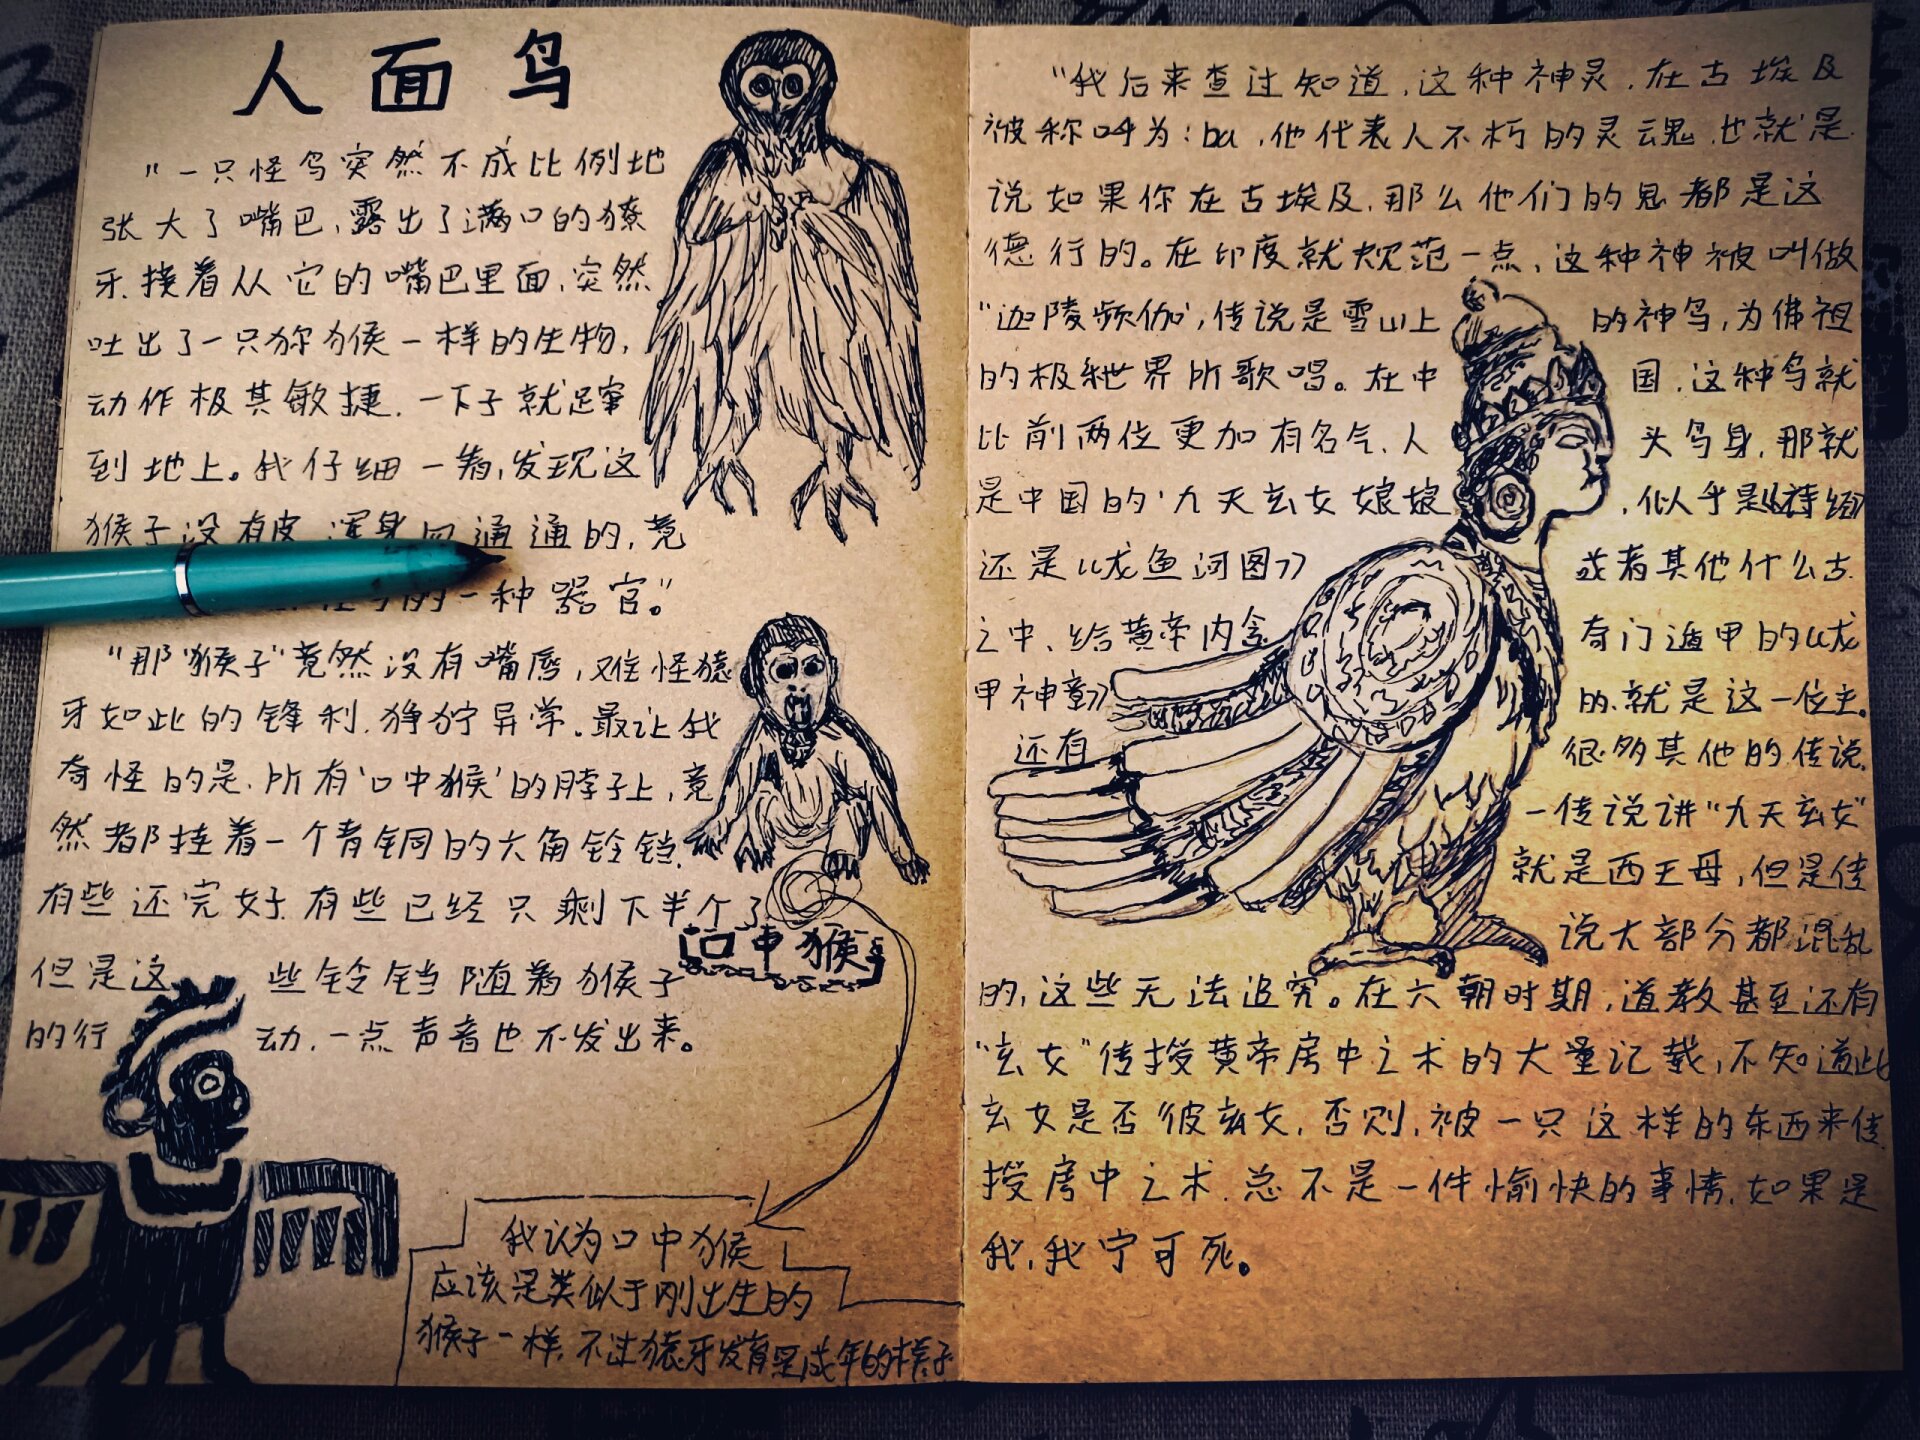 人面鸟
"一只怪鸟突然不成比例地
张大了嘴巴,露出了满口的獠
牙,接着从它的嘴巴里面,突然
吐出了一只猕猴一样的生物,
动作极其敏捷,一下子就蹿
到地上。我仔细一看,发现这
猴子没有皮,浑身血通通的,竟
的一种器官。"
"那'猴子'竟然没有嘴唇,难怪猿
牙如此的锋利,狰狞异常。最让我
奇怪的是,所有'口中猴'的脖子上,竟
然都挂着一个青铜的六角铃铛,
有些还完好,有些已经只剩下半个了
口中猴
但是这些铃铛随着猴子
的行动,一点声音也不发出来。
我认为口中猴
应该是类似于刚出生的
猴子一样,不过猿牙发育是成年的样子
"我后来查过知道,这种神灵,在古埃及
被称呼为:ba,他代表人不朽的灵魂,也就是
说如果你在古埃及,那么他们的鬼都是这
德行的。在印度就规范一点,这种神被叫做
"迦陵频伽",传说是雪山上的神鸟,为佛祖
的极乐世界所歌唱。在中国,这种鸟就
比前两位更加有名气,人头鸟身,那就
是中国的'九天玄女娘娘,似乎是《诗经》
还是《龙鱼河图》或者其他什么古
之中,给黄帝内含奇门遁甲的《龙
甲神章》的,就是这一位主。
还有很多其他的传说,
一传说讲"九天玄女"
就是西王母,但是传
说大部分都混乱
的,这些无法追究。在六朝时期,道教甚至还有
"玄女"传授黄帝房中之术的大量记载,不知道此
玄女是否彼玄女,否则,被一只这样的东西来传
授房中之术,总不是一件愉快的事情,如果是
我,我宁可死。